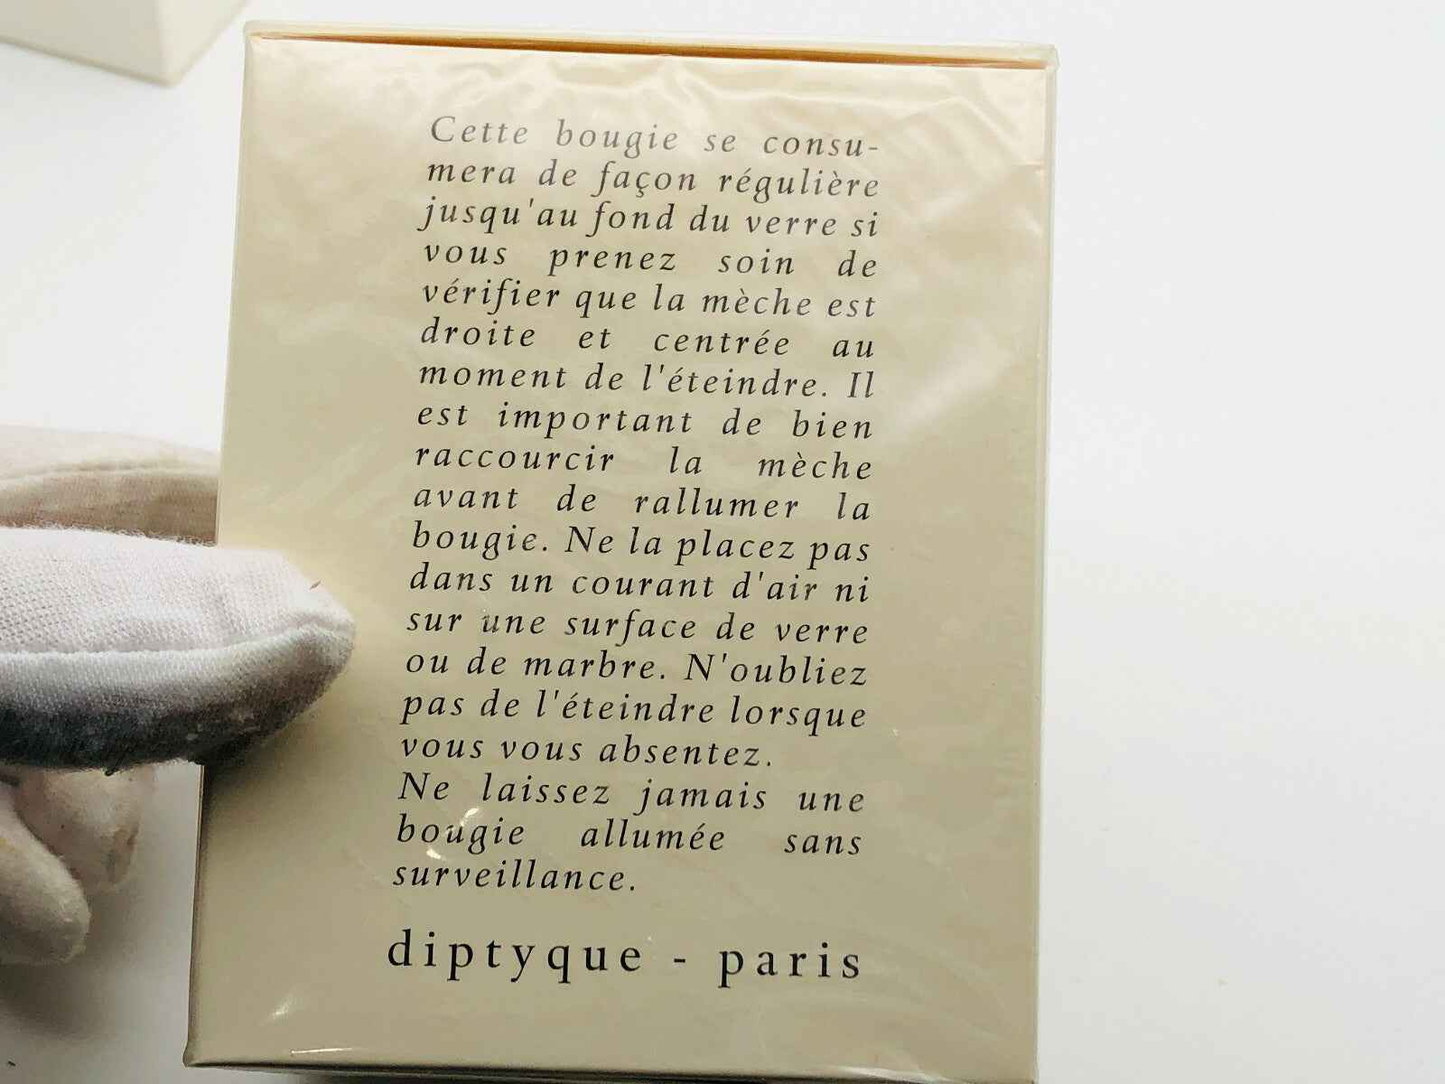 Cette bougie se consu-
mera de façon régulière
jusqu'au fond du verre si
vous prenez soin de
vérifier que la mèche est
droite et centrée au
moment de l'éteindre. Il
est important de bien
raccourcir la mèche
avant de rallumer la
bougie. Ne la placez pas
dans un courant d'air ni
sur une surface de verre
ou de marbre. N'oubliez
pas de l'éteindre lorsque
vous vous absentez.
Ne laissez jamais une
bougie allumée sans
surveillance.
diptyque - paris